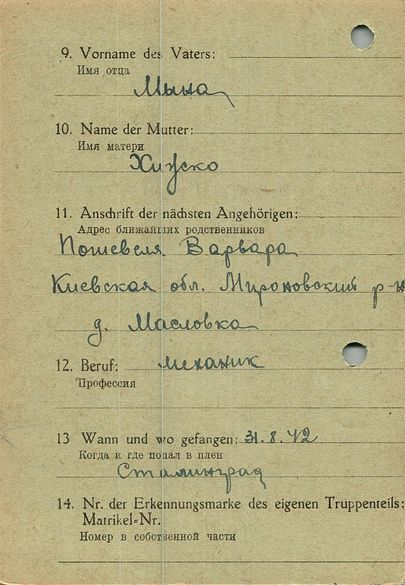 9. Vorname des Vaters:
Имя отца
Мына
10. Name der Mutter:
Имя матери
Хижско
11. Anschrift der nächsten Angehörigen:
Адрес ближайших родственников
Варвара
Киевская обл. Мироновский р-н
д. Масловка
12. Beruf: механик
Профессия
13 Wann und wo gefangen: 31.8.42
Когда и где попал в плен
Сталинград
14. Nr. der Erkennungsmarke des eigenen Truppenteils:
Matrikel-Nr.
Номер в собственной части